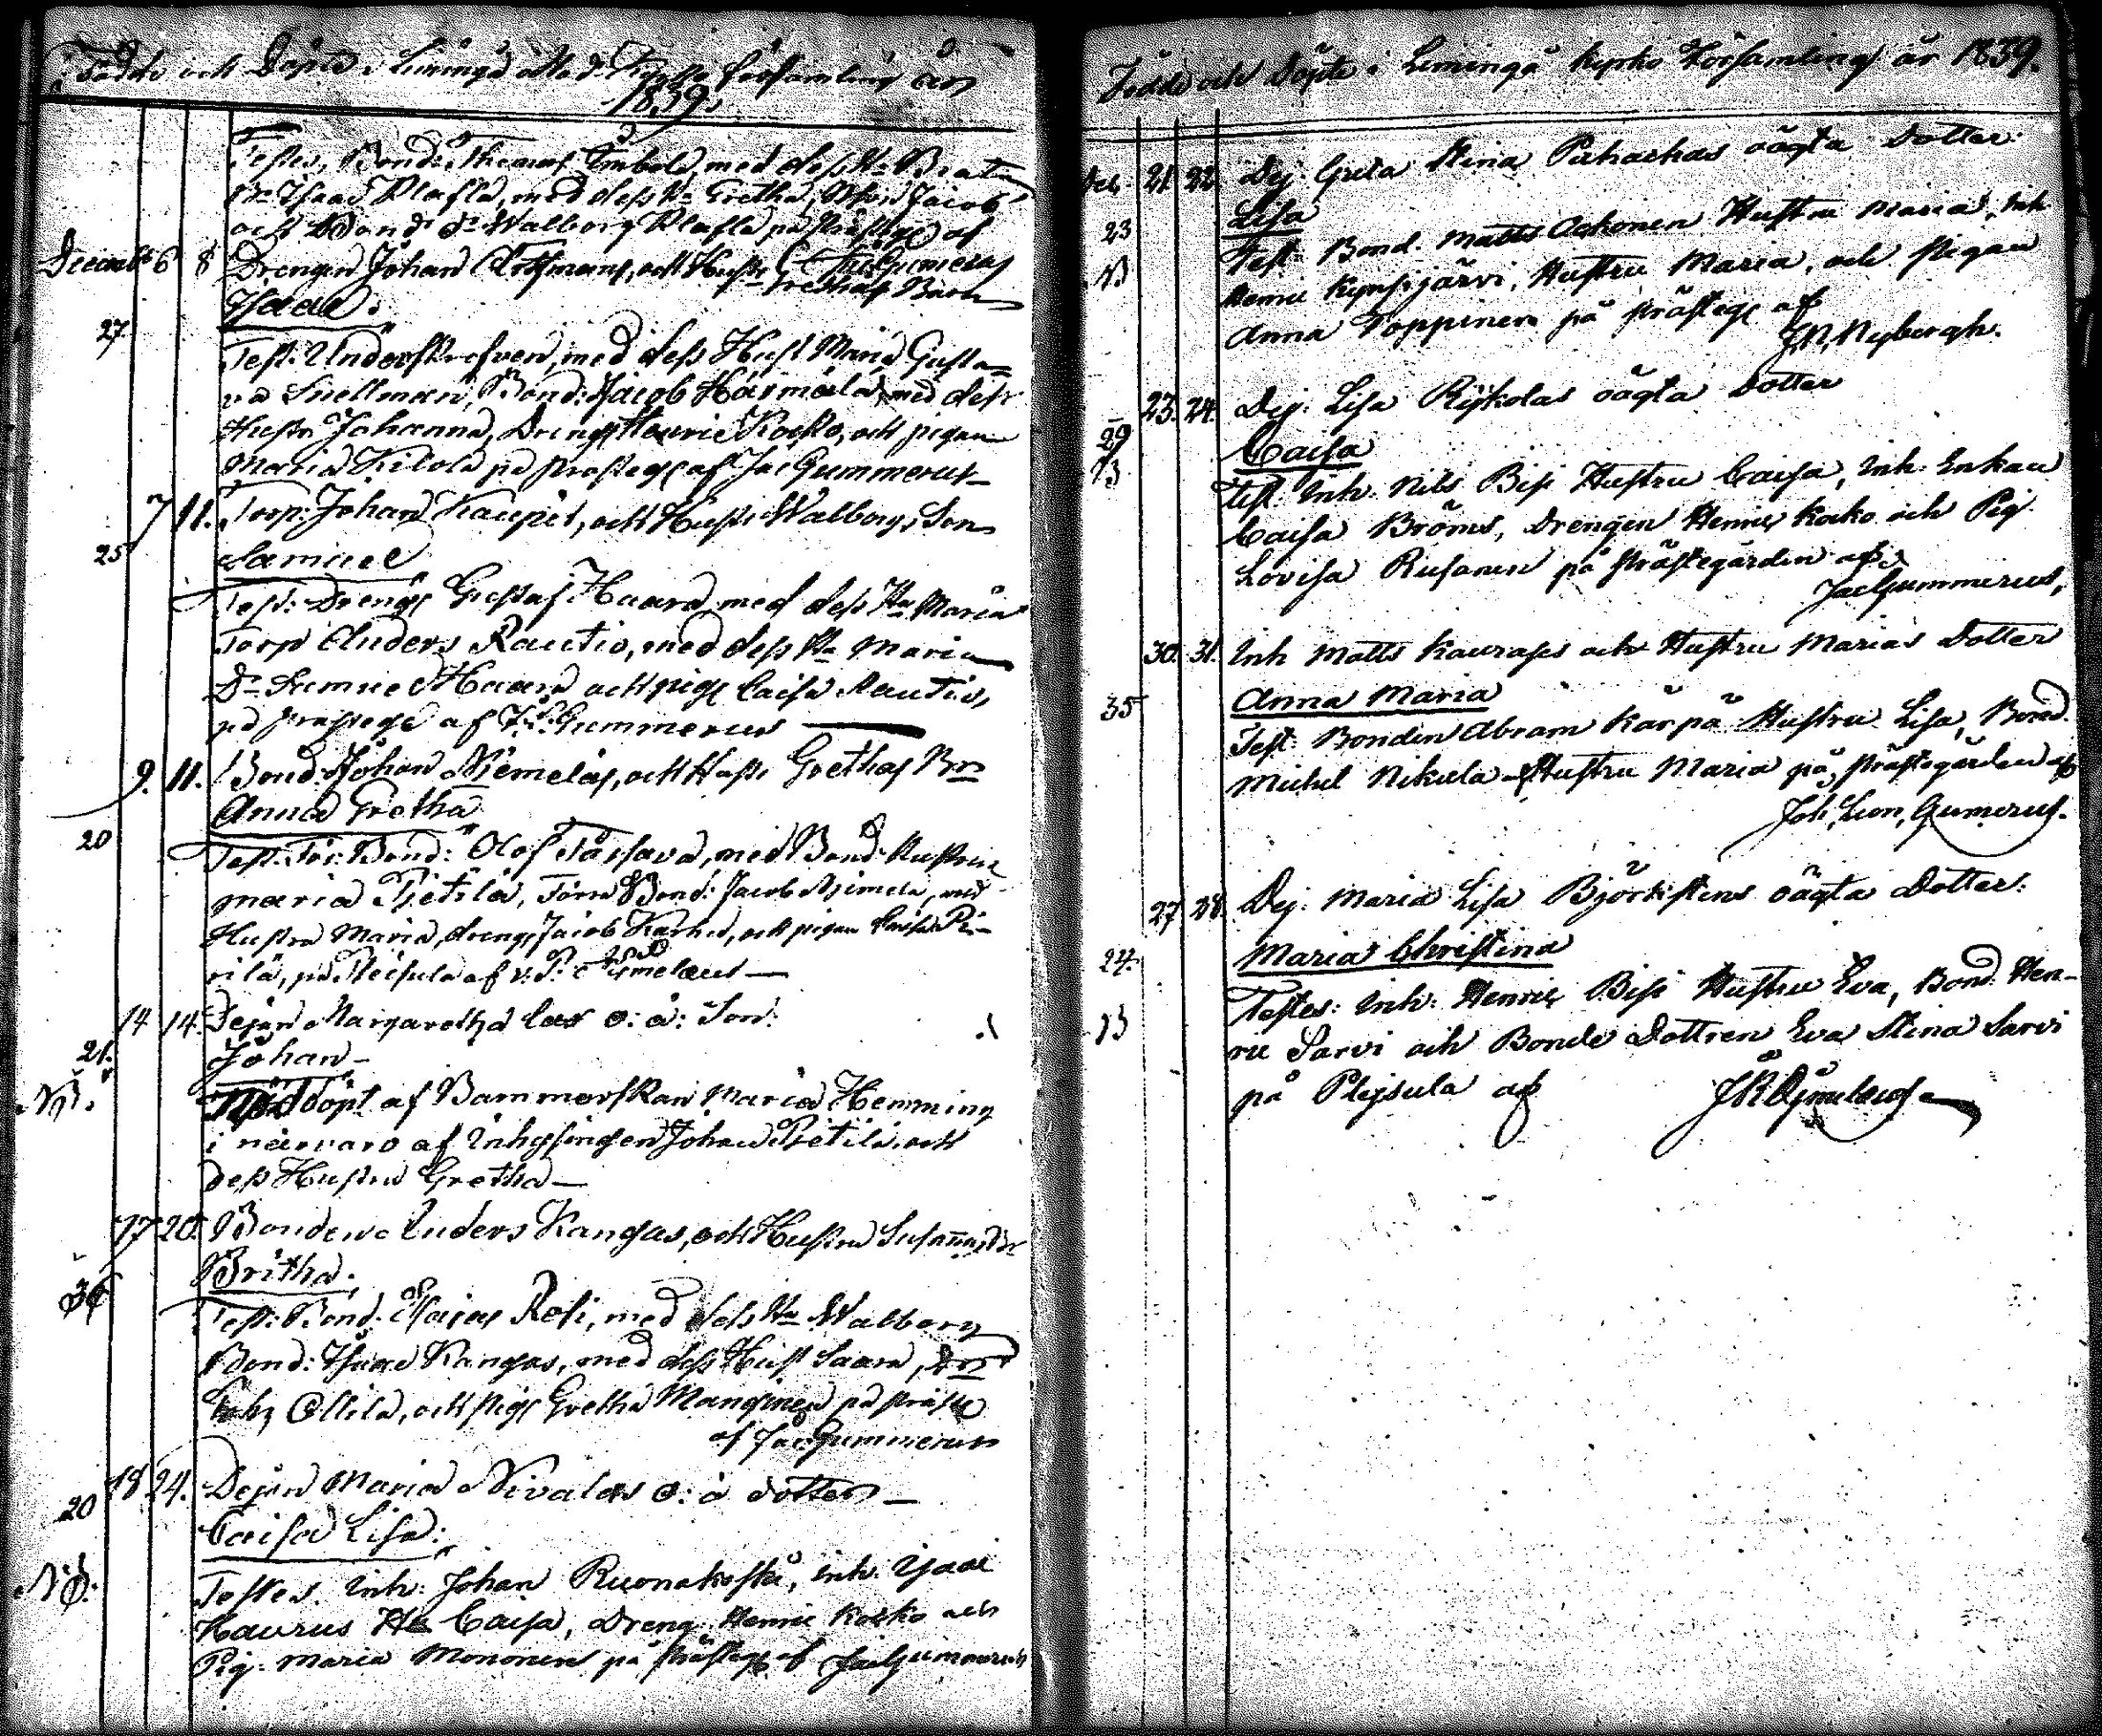 Födde och Döpte i Limingå Moder Kyrko församling år
1839.
Testes, Bond: Thomas Imbola, med dess Hu Beata
Isaac Klasila, med dess Hu Gretha, Jacob
och Bond: dr Walborg Klasila på prästg: af
Gummerus
Decemb: 6 8 Drengen Johan Artsmans, och Hustr: Grethas Barn
Isaac.
27
Test: Underskrefven, med dess Hust Maria Gusta-
va Snellman, Bond: Jacob Härmälä, med dess
Hustr: Johanna, Dreng: Henric Kocko, och pigan
Maria Kilola på prästeg: af Jac Gummerus
7 11. Torp: Johan Kaupis, och Hustr: Walborgs Son
25
Samuel
Test: Dreng: Gustaf Haara med dess Hu Maria
Torp Anders Rautio, med dess Hu Maria
Dr Samuel Haara och pig: Caisa Rautio,
på prästege af Gummerus
9. 11. Bond: Johan Niemeläs, och Hustr: Grethas Br
Anna Gretha
20
Test: För: Bond: Olof Tassava, med Bond: Hustrun
Maria Pietilä, Förra Bond: Jacob Niemelä, med
Hustru Maria, dreng: Jacob Karhu, och pigan Caisa Pi-
rilä, på Pleisula af v: P: Ajmelæus
14 14. Dejan Margaretha o: ä: Son:
21.
Johan
NB.
Nöddöpt af Barnmorskan Maria Hemming
i närvaro af Inhysingen Johan Pietilä, och
dess Hustru Gretha
17 20. Bonden Anders Kangas, och Hustru Susannas Dr
Britha.
36
Test: Bond: Esaias Roti, med dess Hu Walborg
Bond: Isaac Kangas, med dess Hust Saara,
Ollila, och pig: Gretha Manginen på präste
af Jac: Gummerus
18 24. Dejan Maria Nivalas o: ä dotter
20
Caisa Lisa:
NB.
Testes. Inh: Johan Ruonakoski, Inh. Isaac
Haurus Hu Caisa, Dreng Henric Kocko och
Pig: Maria Mononen på prästeg: af Jac Gummerus
Födde och Döpte i Limingå kyrko Församling år 1839.
Dec. 21 22 Dej: Greta Stina Puhackas oägta Dotter:
23
Lisa
NB
Test: Bond: Matts Ockonen Hustru Maria, Inh
Henric Kynsijärvi, Hustru Maria, och Pigan
Anna Toppinen på Prästeg: af
J.N. Nybergh.
23. 24. Dej: Lisa Rijkolas oägta Dotter
29
Caisa
NB
Test: Inh: Nils Bisi Hustru Caisa, Inh: Enkan
Caisa Bröms, Drengen Henric Kocko och Pig:
Lovisa Rusanen på Prästegården af
Jac Gummerus,
30. 31. Inh Matts Kaurases och Hustru Marias Dotter
35
Anna Maria
Test: Bonden Abram Kärpä Hustru Lisa, Bond.
Michel Nikula Hustru Maria på Prästegården af
Joh, Leon, Gumerus.
27 28. Dej: Maria Lisa Björkstens oägta Dotter:
24.
Maria Christina
NB
Testes: Inh: Henric Bisi Hustru Eva, Bond: Hen-
ric Sarvi och Bonde Dottren Eva Stina Sarvi
på Plejsula af J R Ajmelæus